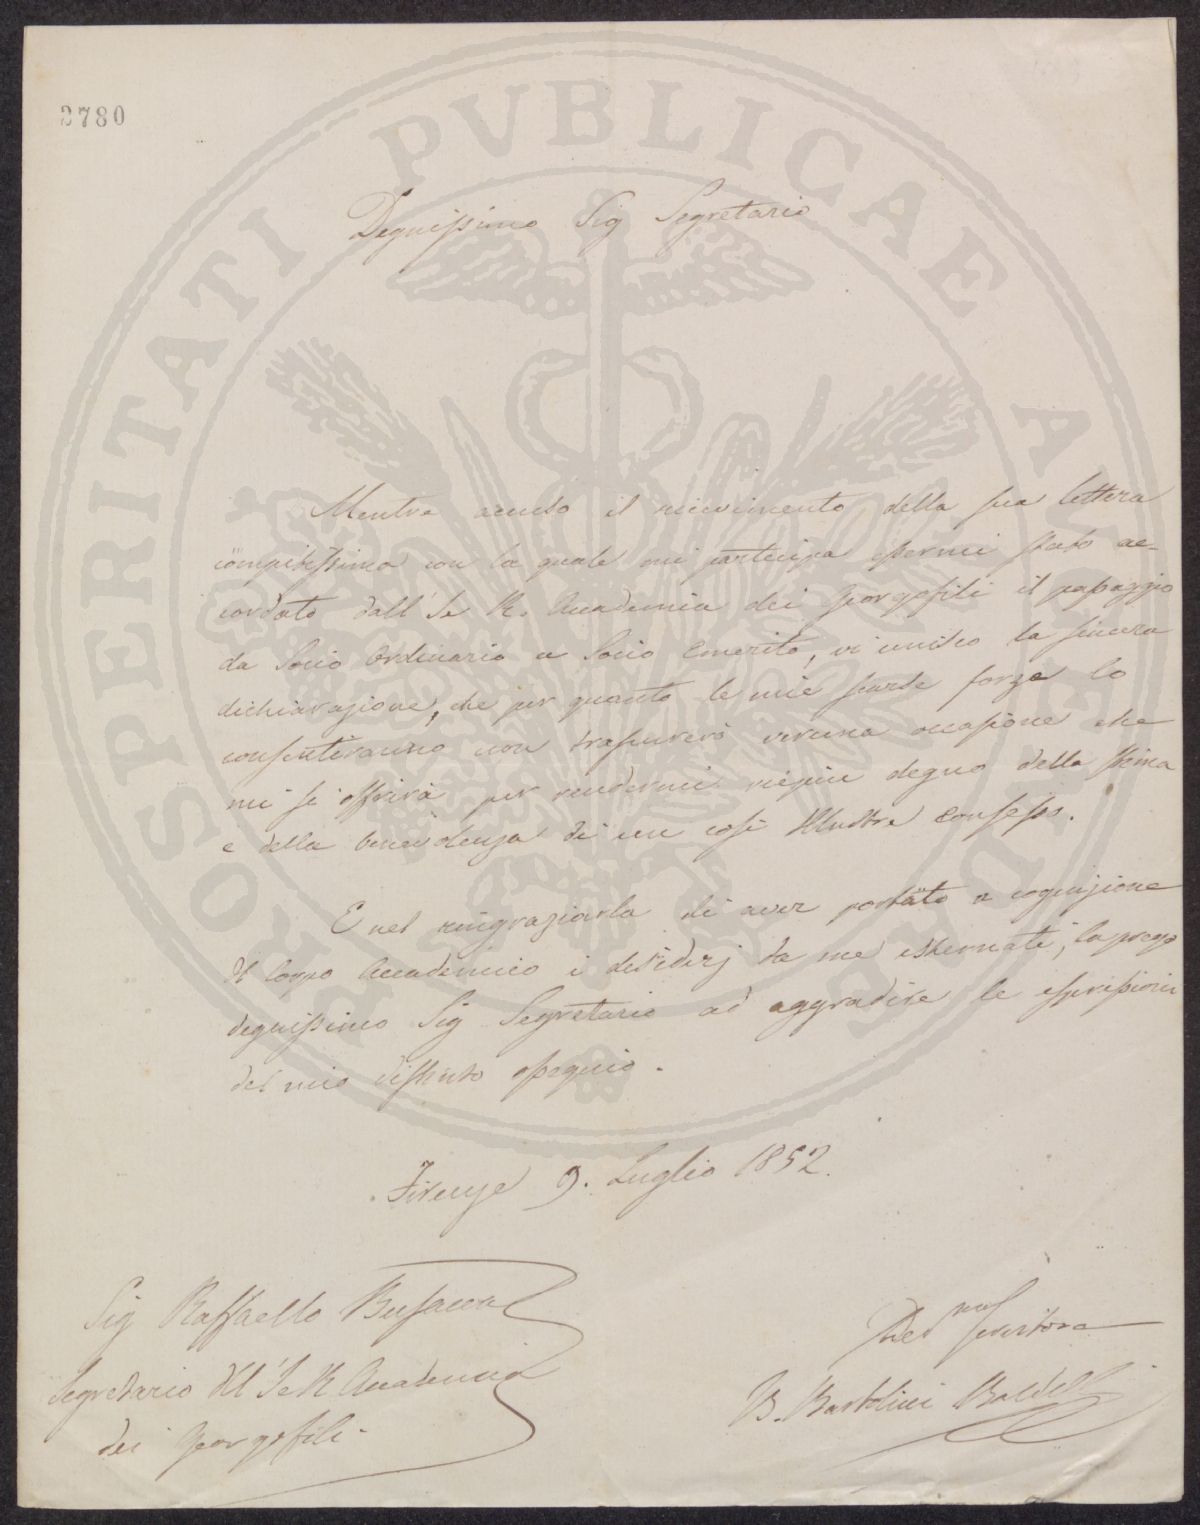 2780
PROSPERITATI PVBLICAE AVGENDAE
Degnissimo Sig Segretario
Mentre accuso il ricevimento della sua lettera
compitissima con la quale mi partecipa essermi stato ac-
cordato dall'I e R. Accademia dei Georgofili il passaggio
da Socio Ordinario a Socio Emerito, vi unisco la sincera
dichiarazione, che per quanto le mie scarse forze lo
consentiranno non trascurerò veruna occasione che
mi si offrirà per rendermi viepiù degno della stima
e della benevolenza di un così Illustre Consesso.
E nel ringraziarla di aver portato a cognizione
del Corpo Accademico i desiderj da me esternati, la prego
degnissimo Sig Segretario ad aggradire le espressioni
del mio distinto ossequio.
Firenze 9. Luglio 1852.
Sig Raffaello Busacca
Segretario dell'I e R Accademia
dei Georgofili.
Dev.mo Servitore
B. Bartolini Baldelli